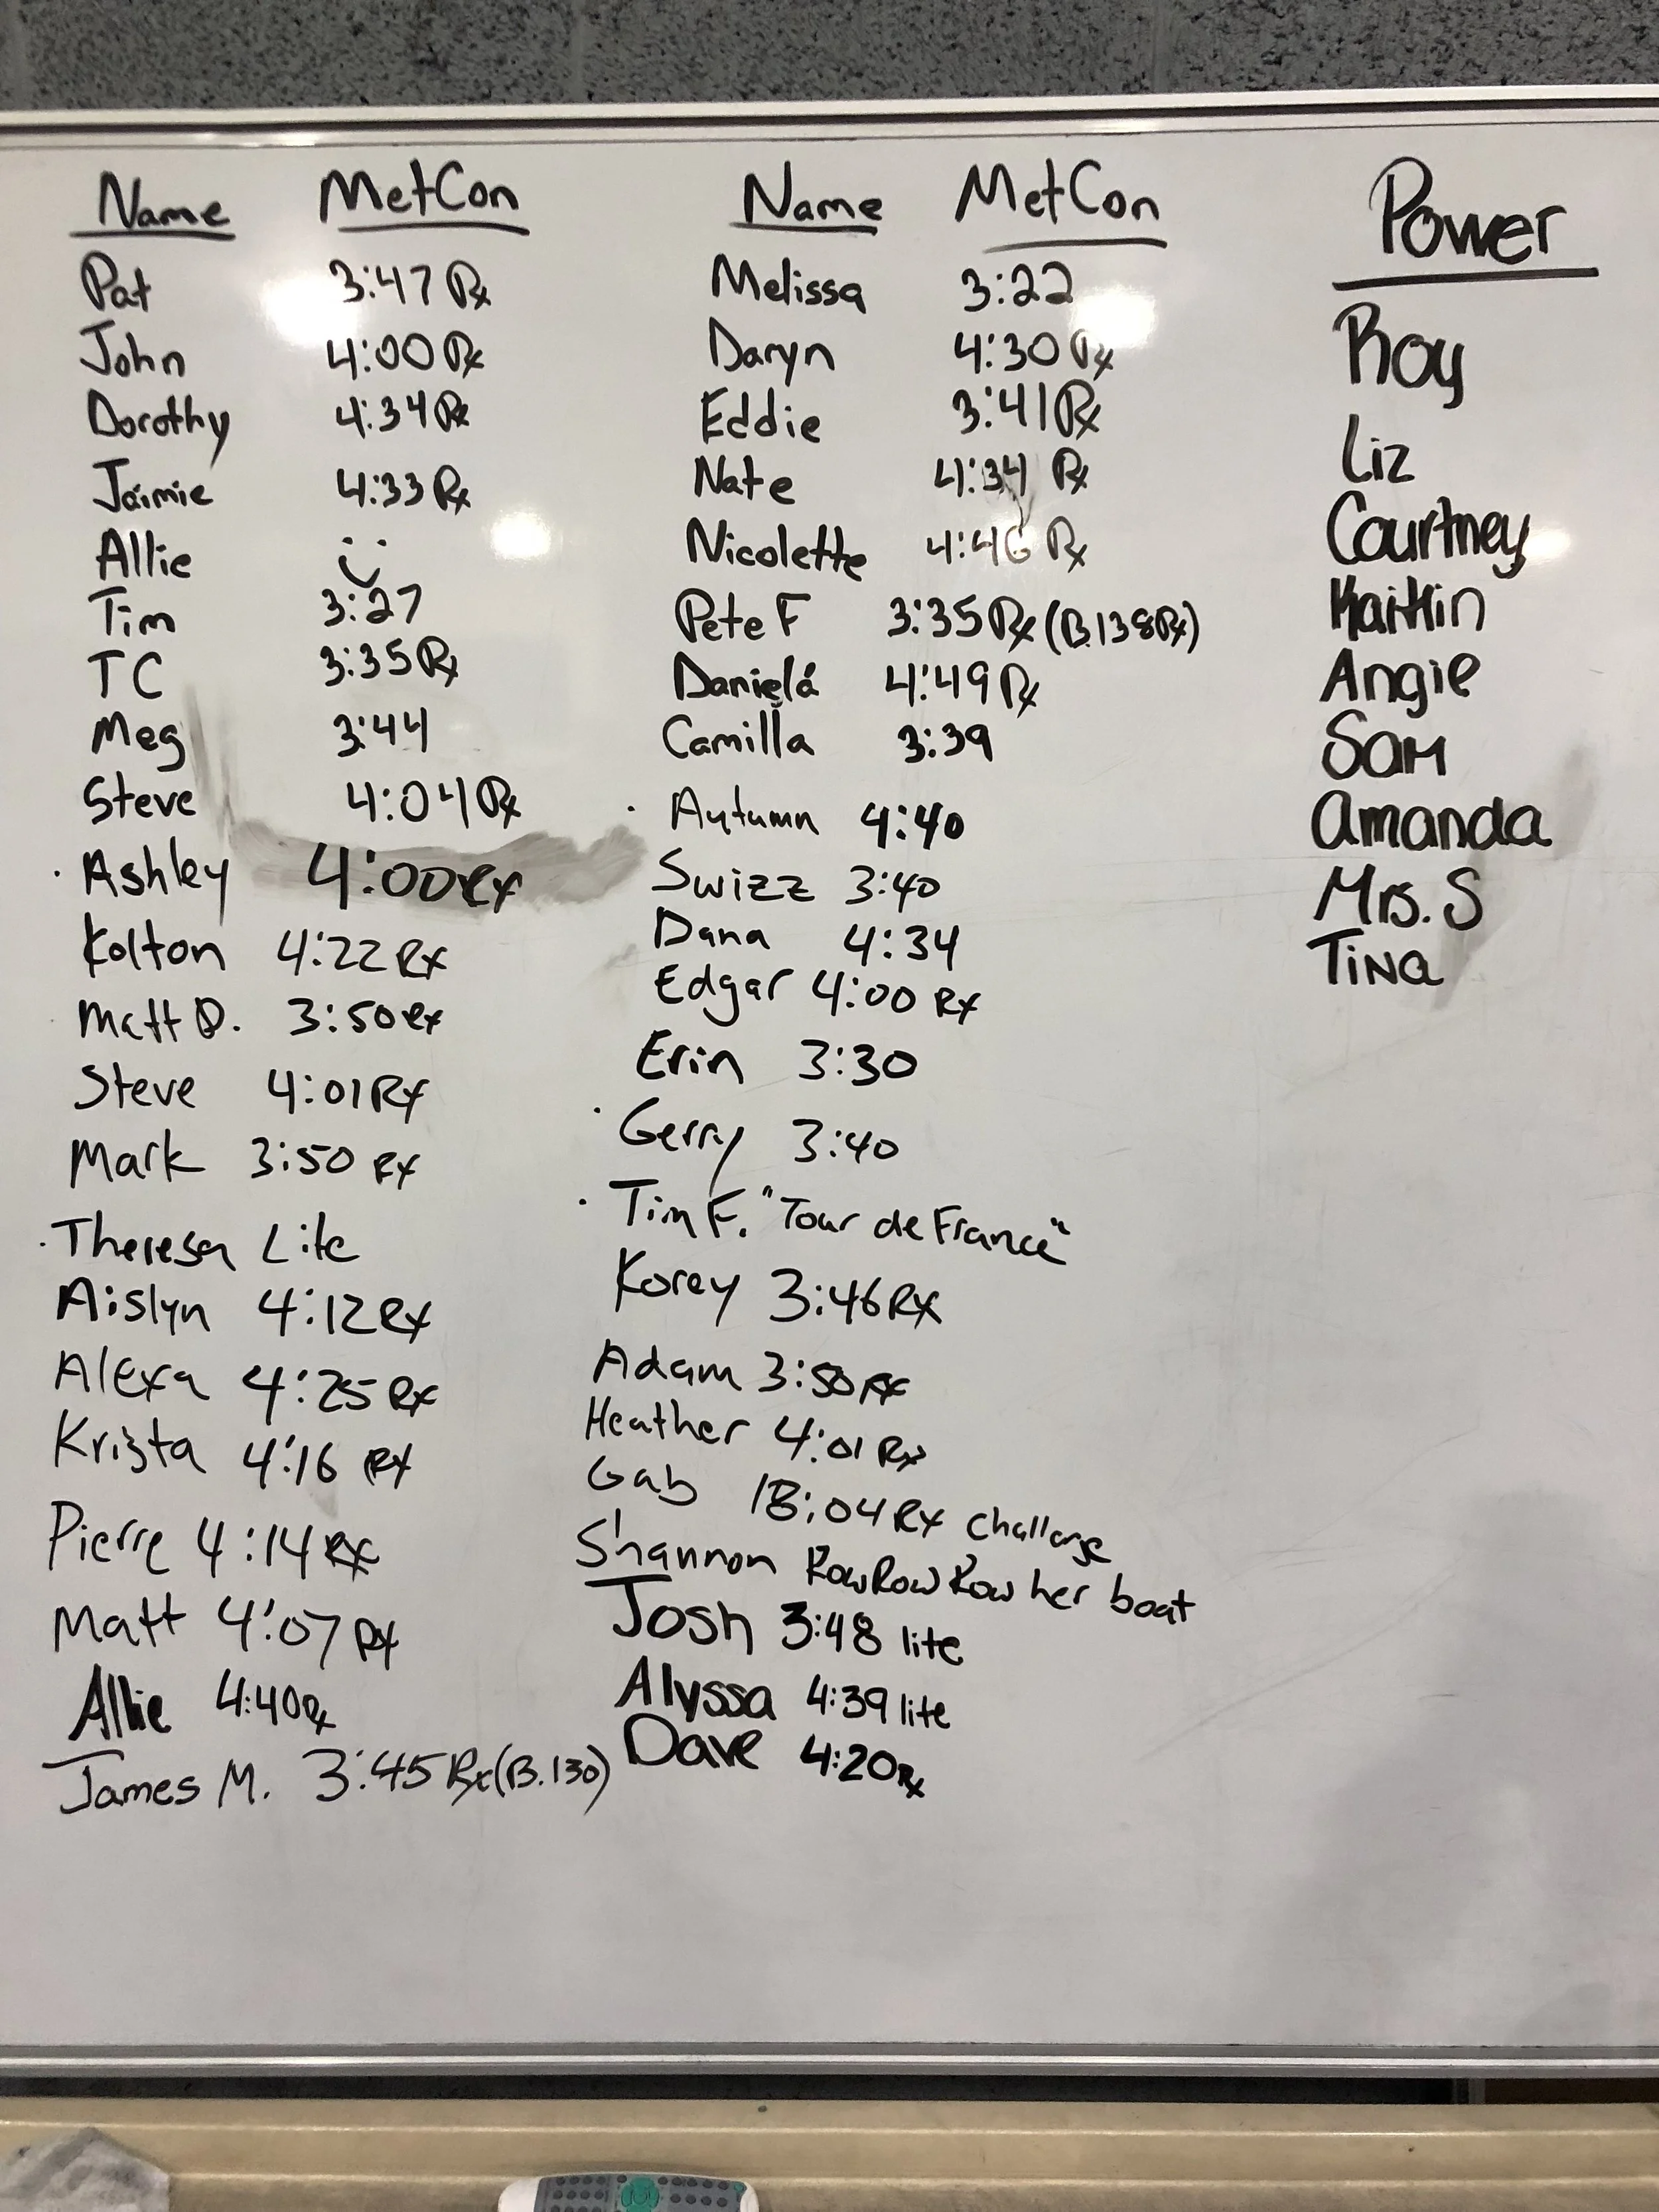 Name MetCon
Pat 3:47 Rx
John 4:00 Rx
Dorothy 4:34 Rx
Jaimie 4:33 Rx
Allie :)
Tim 3:27
TC 3:35 Rx
Meg 3:44
Steve 4:04 Rx
Ashley 4:00 Rx
Kolton 4:22 Rx
Matt D. 3:50 Rx
Steve 4:01 Rx
Mark 3:50 Rx
Theresa Lite
Aislyn 4:12 Rx
Alexa 4:25 Rx
Krista 4:16 Rx
Pierre 4:14 Rx
Matt 4:07 Rx
Allie 4:40 Rx
James M. 3:45 Rx (B.130)
Name MetCon
Melissa 3:22
Daryn 4:30 Rx
Eddie 3:41 Rx
Nate 4:34 Rx
Nicolette 4:46 Rx
Pete F 3:35 Rx (B.138Rx)
Daniela 4:49 Rx
Camilla 3:39
Autumn 4:40
Swizz 3:40
Dana 4:34
Edgar 4:00 Rx
Erin 3:30
Gerry 3:40
Tim F. "Tour de France"
Korey 3:46 Rx
Adam 3:50 Rx
Heather 4:01 Rx
Gab 18:04 Rx Challenge
Shannon Row Row Row her boat
Josh 3:48 lite
Alyssa 4:39 lite
Dave 4:20 Rx
Power
Roy
Liz
Courtney
Kaitlin
Angie
Sam
Amanda
Mrs. S
Tina